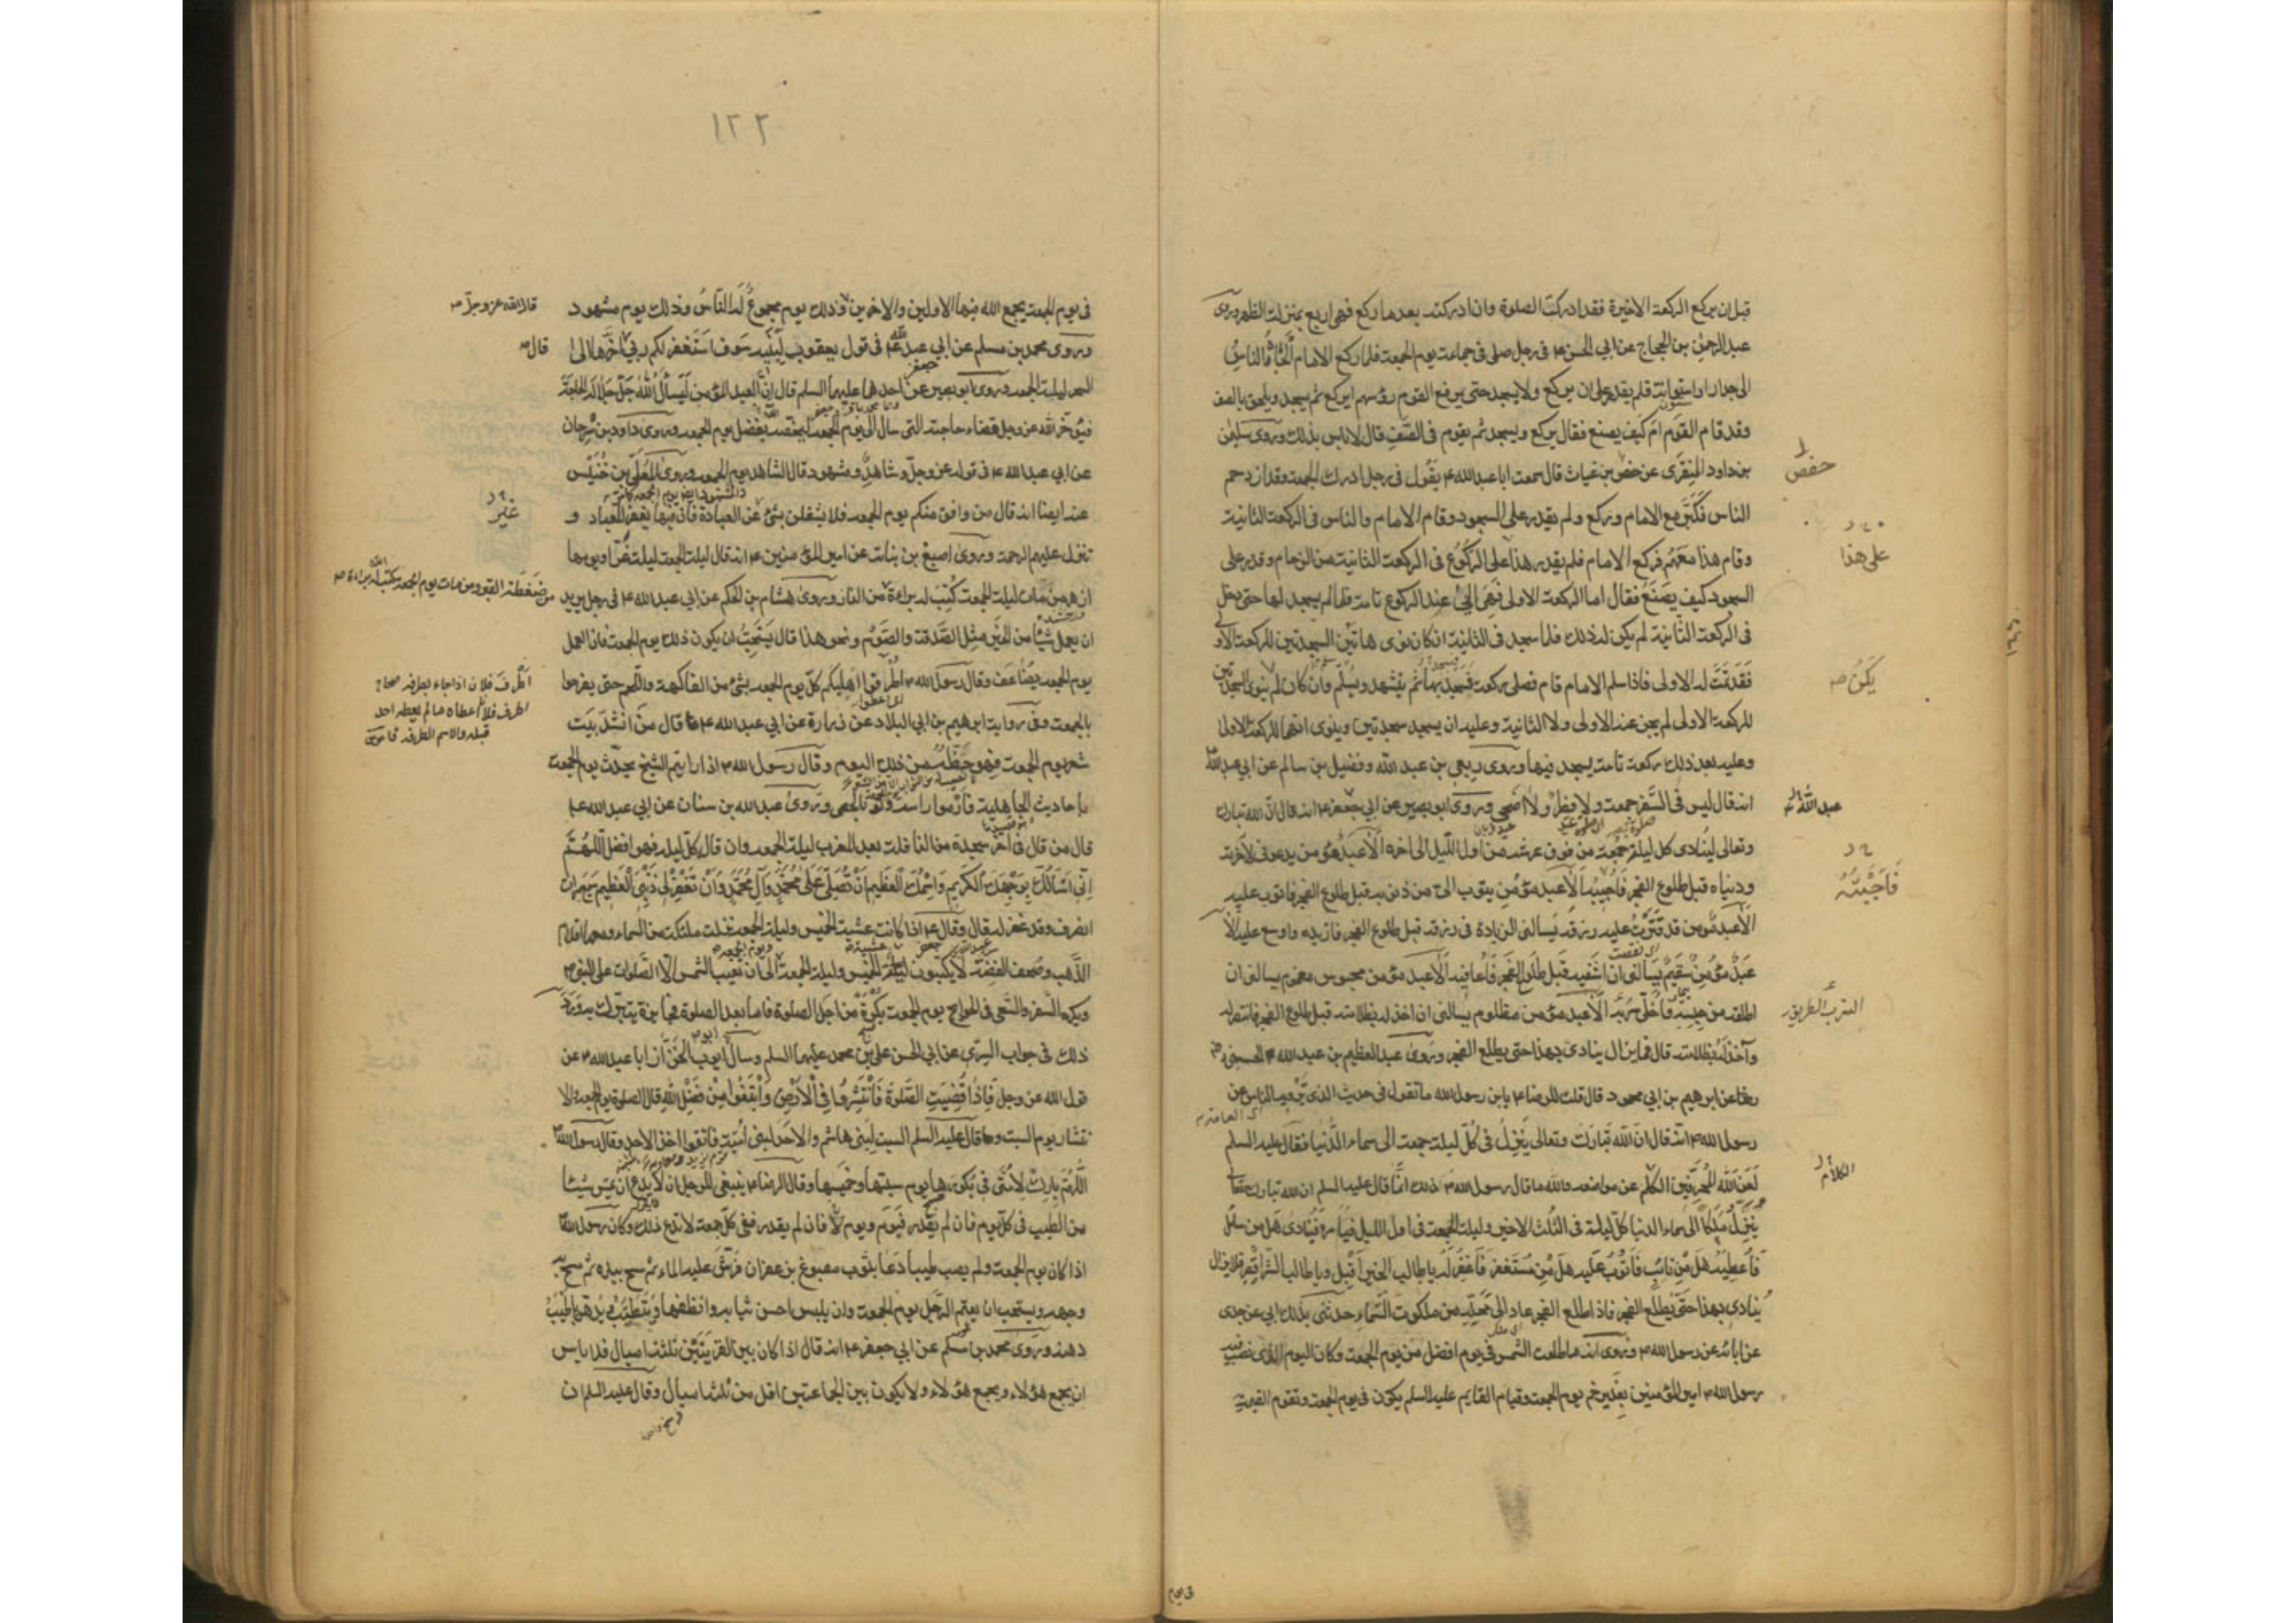 قبل ان يركع الركعة الاخيرة فقد ادركت الصلوة وان ادركته بعد ما ركع فهى اربع بمنزلة الظهر وروى
عبد الرحمن بن الحجاج عن ابي الحسن ع في رجل صلى في جماعة يوم الجمعة فلما ركع الامام الجأه الناس
الى جدار او اسطوانة فلم يقدر على ان يركع ولا يسجد حتى يرفع القوم رؤسهم ايركع ثم يسجد ويلحق بالصف
وقد قام القوم ام كيف يصنع فقال يركع ويسجد ثم يقوم في الصف قال لا باس بذلك وروى سليمن
بن داود المنقرى عن حفص بن غياث قال سمعت ابا عبد الله ع يقول في رجل ادرك الجمعة وقد ازدحم
حفص
الناس فكبر مع الامام وركع ولم يقدر على السجود وقام الامام والناس في الركعة الثانية
وقام هذا معهم فركع الامام فلم يقدر هذا على الركوع في الركعة الثانية من الزحام وقدر على
على هذا
السجود كيف يصنع فقال اما الركعة الاولى فهى الى عند الركوع تامة فلما لم يسجد لها حتى دخل
في الركعة الثانية لم يكن له ذلك فلما سجد في الثانية ان كان نوى هاتين السجدتين للركعة الاولى
فقد تمت له الاولى فاذا سلم الامام قام فصلى ركعة فسجد بها ثم يتشهد ويسلم وان كان لم ينوى السجدتين
للركعة الاولى لم يجز عنه الاولى ولا الثانية وعليه ان يسجد سجدتين وينوى انهما للركعة الاولى
وعليه بعد ذلك ركعة تامة يسجد فيها وروى ربعي بن عبد الله وفضيل بن سالم عن ابي عبد الله
انه قال ليس في السفر جمعة ولا فطر ولا اضحى وروى ابو بصير عن ابي جعفر ع انه قال ان الله تبارك
عبد الله
وتعالى لينادى كل ليلة جمعة من فوق عرشه من اول الليل الى اخره الا عبد مؤمن يدعوني لاخرته
ودنياه قبل طلوع الفجر فاجيبه الا عبد مؤمن يتوب الى من ذنوبه قبل طلوع الفجر فاتوب عليه
الا عبد مؤمن قد قترت عليه رزقه يسالني الزيادة في رزقه قبل طلوع الفجر فازيده واوسع عليه الا
عبد مؤمن سقيم يسالني ان اشفيه قبل طلوع الفجر فاعافيه الا عبد مؤمن محبوس مغموم يسالني ان
اطلقه من حبسه فاخلى سربه الا عبد مؤمن مظلوم يسالني ان اخذ له بظلامته قبل طلوع الفجر فانتصر له
السرب الطريق
وآخذ له بظلامته قال فما يزال ينادى بهذا حتى يطلع الفجر وروى عبد العظيم بن عبد الله الحسنى
عن ابرهيم بن ابي محمود قال قلت للرضا ع يا بن رسول الله ما تقول في حديث الذى يرويه الناس عن
رسول الله ص انه قال ان الله تبارك وتعالى ينزل في كل ليلة جمعة الى سماء الدنيا فقال عليه السلم
لعن الله المحرفين الكلم عن مواضعه والله ما قال رسول الله ص ذلك انما قال عليه السلم ان الله تبارك وتعالى
الكلام
ينزل ملكا الى سماء الدنيا كل ليلة في الثلث الاخير وليلة الجمعة في اول الليل فيامره فينادى هل من سائل
فاعطيه هل من تائب فاتوب عليه هل من مستغفر فاغفر له يا طالب الخير اقبل ويا طالب الشر اقصر فلا يزال
ينادى بهذا حتى يطلع الفجر فاذا طلع الفجر عاد الى محله من ملكوت السماء حدثنى بذلك ابي عن جدى
عن ابائه عن رسول الله ص وروى انه ما طلعت الشمس في يوم افضل من يوم الجمعة وكان اليوم الذى نصب فيه
رسول الله ص امير المؤمنين بغدير خم يوم الجمعة وقيام القايم عليه السلم يكون في يوم الجمعة وتقوم القيمة
في يوم
١٢٢
في يوم الجمعة يجمع الله فيها الاولين والاخرين وذلك يوم مجموع له الناس وذلك يوم مشهود
قال الله عز وجل
وروى محمد بن مسلم عن ابي عبد الله ع في قول يعقوب لبنيه سوف استغفر لكم ربي اخرها الى
قال
السحر ليلة الجمعة وروى ابو بصير عن احدهما عليهما السلم قال ان العبد المؤمن ليسأل الله جل جلاله الحاجة
فيؤخر الله عز وجل قضاء حاجته التى سال الى يوم الجمعة ليخصه بفضل يوم الجمعة وروى داود بن سرحان
عن ابي عبد الله ع في قوله عز وجل وشاهد ومشهود قال الشاهد يوم الجمعة وروى المعلى بن خنيس
عنه ايضا انه قال من وافق منكم يوم الجمعة فلا يشغلن بشئ عن العبادة فان فيها يغفر للعباد و
غير
تنزل عليهم الرحمة وروى اصبغ بن نباتة عن امير المؤمنين ع انه قال ليلة الجمعة ليلة غراء ويومها
ازهر من مات ليلة الجمعة كتب له براءة من النار وروى هشام بن الحكم عن ابي عبد الله ع في رجل يريد
من ضغطة القبر ومن مات يوم الجمعة كتب الله له براءة
ان يعمل شيئا من الخير مثل الصدقة والصوم ونحو هذا قال يستحب ان يكون ذلك يوم الجمعة فان العمل
يوم الجمعة يضاعف وقال رسول الله ص اطرفوا اهليكم كل يوم الجمعة بشئ من الفاكهة واللحم حتى يفرحوا
اطرف فلان اذا جاء بطرفة صحاح
اطرف فلانا اعطاه ما لم يعطه احد
قبله والاسم الطرفة قاموس
بالجمعة وفي رواية ابرهيم بن ابي البلاد عن زرارة عن ابي عبد الله ع قال من انشد بيت
شعر يوم الجمعة فهو حظه من ذلك اليوم وقال رسول الله ص اذا رايتم الشيخ يحدث يوم الجمعة
باحاديث الجاهلية فارموا راسه ولو بالحصى وروى عبد الله بن سنان عن ابي عبد الله ع
قال من قال في اخر سجدة من النافلة بعد المغرب ليلة الجمعة وان قال كل ليلة فهو افضل اللهم
اني اسالك بوجهك الكريم واسمك العظيم ان تصلى على محمد وآل محمد وان تغفر لى ذنبى العظيم سبع مرات
انصرف وقد غفر له قال وقال ع اذا كانت عشية الخميس وليلة الجمعة نزلت ملئكة من السماء ومعها اقلام
الذهب وصحف الفضة لا يكتبون ليلة الخميس وليلة الجمعة الى ان تغيب الشمس الا الصلوات على النبي ص
ويكره السفر والسعى في الحوائج يوم الجمعة بكرة من اجل الصلوة فاما بعد الصلوة فجائزة يتبرك به ورد
ذلك في جواب السرى عن ابي الحسن على بن محمد عليهما السلم وسال ابو ايوب الخزاز ابا عبد الله ع عن
قول الله عز وجل فاذا قضيت الصلوة فانتشروا في الارض وابتغوا من فضل الله قال الصلوة يوم الجمعة والا
نتشار يوم السبت وقال عليه السلم السبت لبنى هاشم والاحد لبنى امية فاتقوا اخذ الاحد وقال رسول الله
اللهم بارك لامتى في بكورها يوم سبتها وخميسها وقال الرضا ع ينبغى للرجل ان لا يدع ان يمس شيئا
من الطيب في كل يوم فان لم يقدر فيوم ويوم لا فان لم يقدر ففى كل جمعة لا يدع ذلك وكان رسول الله
اذا كان يوم الجمعة ولم يصب طيبا دعا بثوب مصبوغ بزعفران فرش عليه الماء ثم مسح بيده ثم مسح به
وجهه ويستحب ان يعتم الرجل يوم الجمعة وان يلبس احسن ثيابه وانظفها ويتطيب ويدهن باطيب
دهنه وروى محمد بن مسلم عن ابي جعفر ع انه قال اذا كان بين القريتين ثلثة اميال فلا باس
ان يجمع هؤلاء ويجمع هؤلاء ولا يكون بين الجماعتين اقل من ثلثة اميال وقال عليه السلم ان